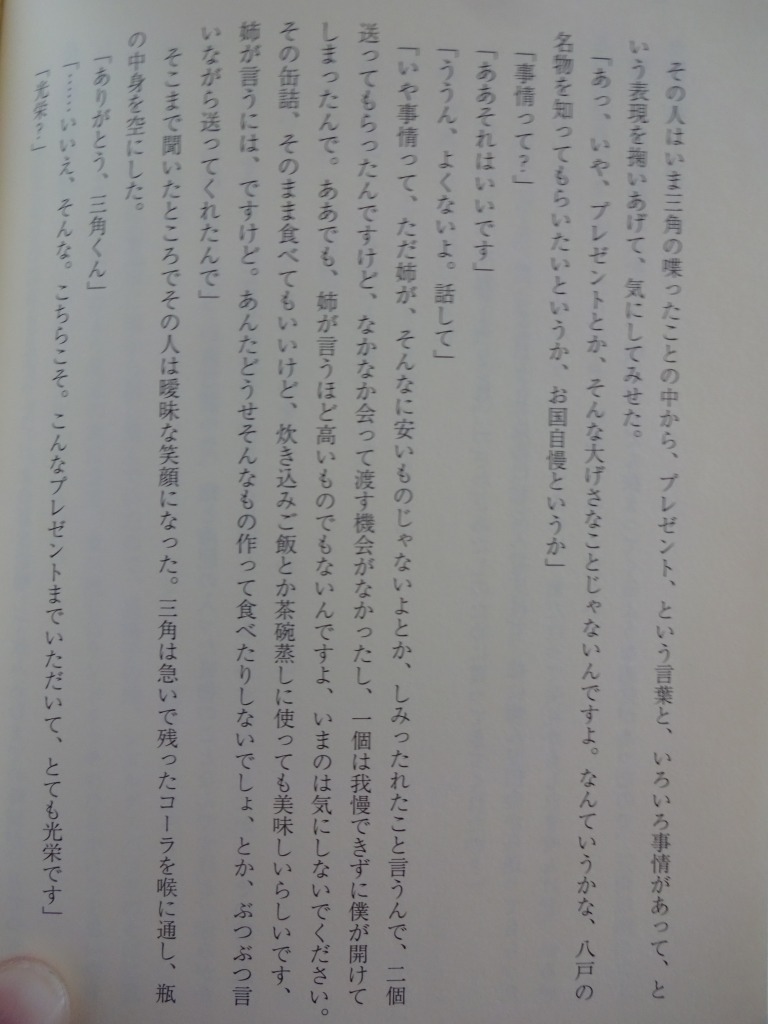 その人はいま三角の喋ったことの中から、プレゼント、という言葉と、いろいろ事情があって、と
いう表現を掬いあげて、気にしてみせた。
「あっ、いや、プレゼントとか、そんな大げさなことじゃないんですよ。なんていうかな、八戸の
名物を知ってもらいたいというか、お国自慢というか」
「事情って？」
「ああそれはいいです」
「ううん、よくないよ。話して」
「いや事情って、ただ姉が、そんなに安いものじゃないよとか、しみったれたこと言うんで、二個
送ってもらったんですけど、なかなか会って渡す機会がなかったし、一個は我慢できずに僕が開けて
しまったんで。ああでも、姉が言うほど高いものでもないんですよ、いまのは気にしないでください。
その缶詰、そのまま食べてもいいけど、炊き込みご飯とか茶碗蒸しに使っても美味しいらしいです、
姉が言うには、ですけど。あんたどうせそんなもの作って食べたりしないでしょ、とか、ぶつぶつ言
いながら送ってくれたんで」
そこまで聞いたところでその人は曖昧な笑顔になった。三角は急いで残ったコーラを喉に通し、瓶
の中身を空にした。
「ありがとう、三角くん」
「……いいえ、そんな。こちらこそ。こんなプレゼントまでいただいて、とても光栄です」
「光栄？」